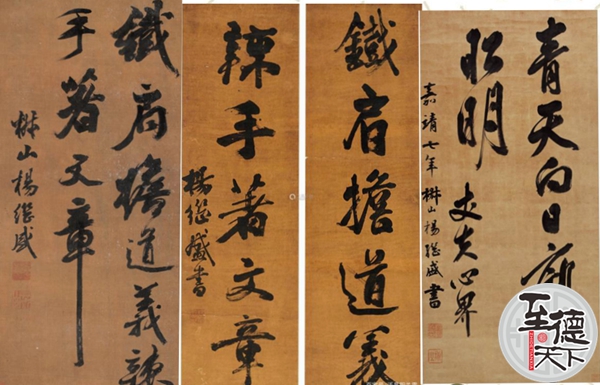 青天白日
明
丈夫心界
嘉靖七年椒山楊繼盛書
鐵肩擔道義
辣手著文章
楊繼盛書
鐵肩擔道義辣
手著文章
椒山楊繼盛
至德天下